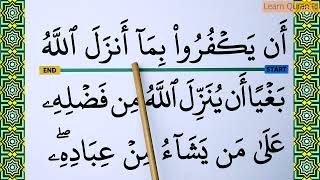 Learn Quran
أَن يَكۡفُرُواْ بِمَآ أَنزَلَ ٱللَّهُ
END START
بَغۡيًا أَن يُنَزِّلَ ٱللَّهُ مِن فَضۡلِهِۦ
عَلَىٰ مَن يَشَآءُ مِنۡ عِبَادِهِۦۖ